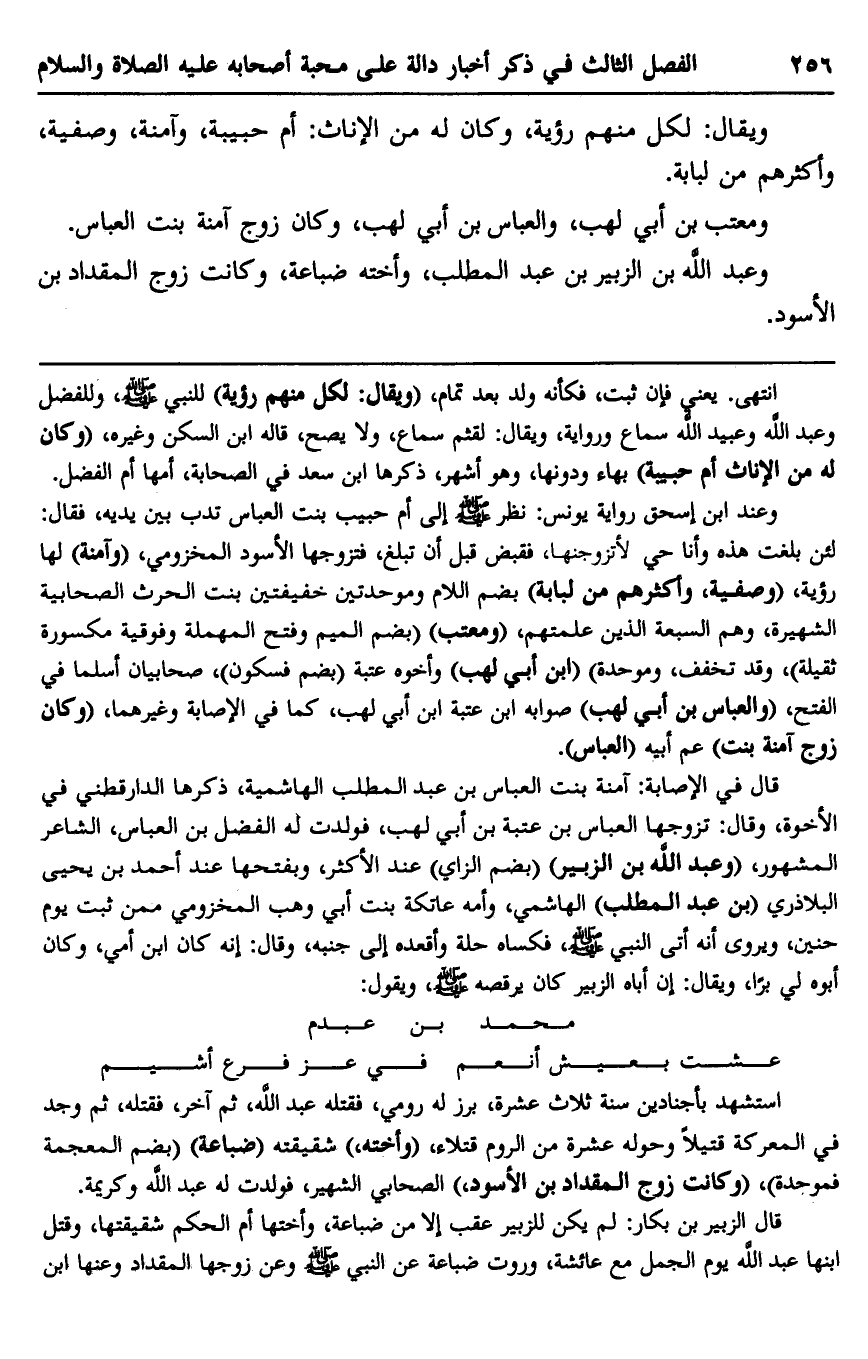 ٢٥٦ الفصل الثالث في ذكر أخبار دالة على محبة أصحابه عليه الصلاة والسلام
ويقال: لكل منهم رؤية، وكان له من الإناث: أم حبيبة، وآمنة، وصفية،
وأكثرهم من لبابة.
ومعتب بن أبي لهب، والعباس بن أبي لهب، وكان زوج آمنة بنت العباس.
وعبد اللَّه بن الزبير بن عبد المطلب، وأخته ضباعة، وكانت زوج المقداد بن
الأسود.
انتهى. يعني فإن ثبت، فكأنه ولد بعد تمام، (ويقال: لكل منهم رؤية) للنبي ﷺ، وللفضل
وعبد اللَّه وعبيد اللَّه سماع ورواية، ويقال: لقثم سماع، ولا يصح، قاله ابن السكن وغيره، (وكان
له من الإناث أم حبيبة) بهاء ودونها، وهو أشهر، ذكرها ابن سعد في الصحابة، أمها أم الفضل.
وعند ابن إسحق رواية يونس: نظر ﷺ إلى أم حبيب بنت العباس تدب بين يديه، فقال:
لئن بلغت هذه وأنا حي لأتزوجنها، فقبض قبل أن تبلغ، فتزوجها الأسود المخزومي، (وآمنة) لها
رؤية، (وصفية، وأكثرهم من لبابة) بضم اللام وموحدتين خفيفتين بنت الحرث الصحابية
الشهيرة، وهم السبعة الذين علمتهم، (ومعتب) (بضم الميم وفتح المهملة وفوقية مكسورة
ثقيلة)، وقد تخفف، وموحدة) (ابن أبي لهب) وأخوه عتبة (بضم فسكون)، صحابيان أسلما في
الفتح، (والعباس بن أبي لهب) صوابه ابن عتبة ابن أبي لهب، كما في الإصابة وغيرهما، (وكان
زوج آمنة بنت) عم أبيه (العباس).
قال في الإصابة: آمنة بنت العباس بن عبد المطلب الهاشمية، ذكرها الدارقطني في
الأخوة، وقال: تزوجها العباس بن عتبة بن أبي لهب، فولدت له الفضل بن العباس، الشاعر
المشهور، (وعبد اللَّه بن الزبير) (بضم الزاي) عند الأكثر، وبفتحها عند أحمد بن يحيى
البلاذري (بن عبد المطلب) الهاشمي، وأمه عاتكة بنت أبي وهب المخزومي ممن ثبت يوم
حنين، ويروى أنه أتى النبي ﷺ، فكساه حلة وأقعده إلى جنبه، وقال: إنه كان ابن أمي، وكان
أبوه لي برًا، ويقال: إن أباه الزبير كان يرقصه ﷺ، ويقول:
محمد بن عبدم
عشت بعيش أنعم في عز فرع أشيم
استشهد بأجنادين سنة ثلاث عشرة، برز له رومي، فقتله عبد اللَّه، ثم آخر، فقتله، ثم وجد
في المعركة قتيلاً وحوله عشرة من الروم قتلاء، (وأخته،) شقيقته (ضباعة) (بضم المعجمة
فموحدة)، (وكانت زوج المقداد بن الأسود،) الصحابي الشهير، فولدت له عبد اللَّه وكريمة.
قال الزبير بن بكار: لم يكن للزبير عقب إلا من ضباعة، وأختها أم الحكم شقيقتها، وقتل
ابنها عبد اللَّه يوم الجمل مع عائشة، وروت ضباعة عن النبي ﷺ وعن زوجها المقداد وعنها ابن